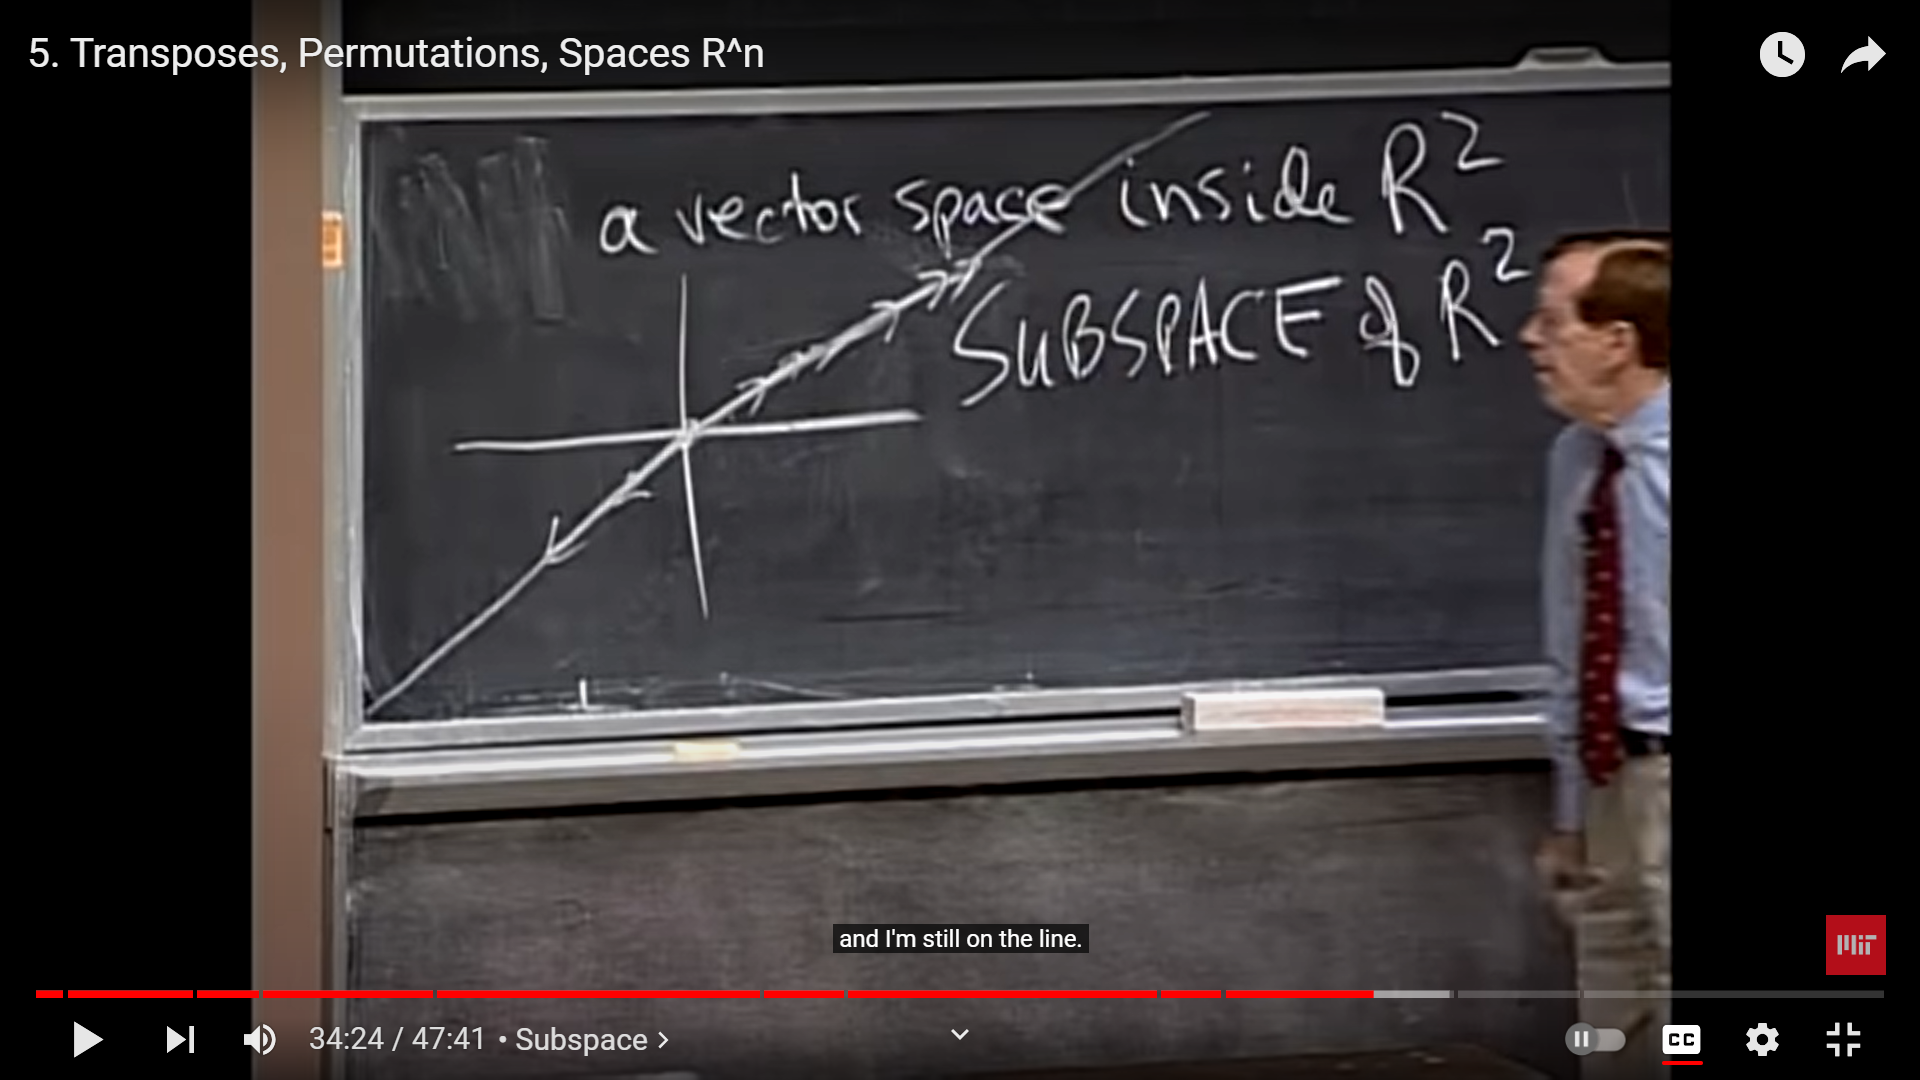 5. Transposes, Permutations, Spaces R^n
a vector space inside R²
SUBSPACE of R²
and I'm still on the line.
MIT
34:24 / 47:41 • Subspace >
CC